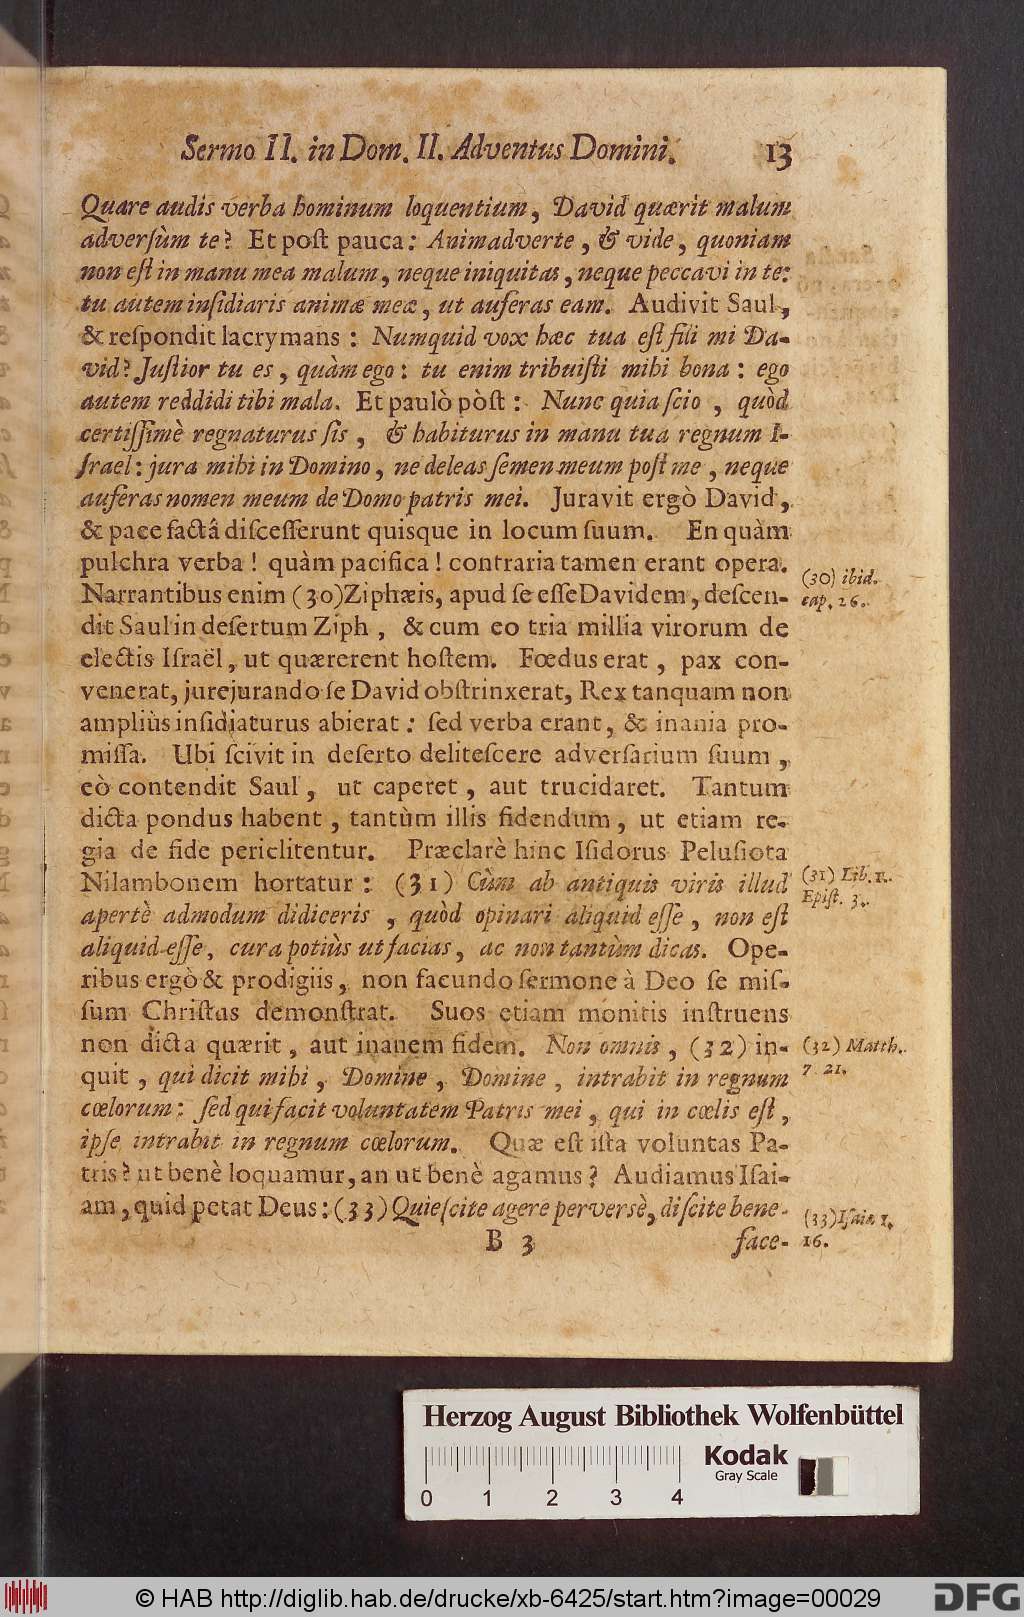 Sermo II. in Dom. II. Adventus Domini. 13
Quare audis verba hominum loquentium, David quærit malum
adverſùm te? Et poſt pauca: Animadverte, & vide, quoniam
non eſt in manu mea malum, neque iniquitas, neque peccavi in te:
tu autem inſidiaris animæ meæ, ut auferas eam. Audivit Saul,
& reſpondit lacrymans: Numquid vox hæc tua eſt fili mi Da-
vid? Juſtior tu es, quàm ego: tu enim tribuiſti mihi bona: ego
autem reddidi tibi mala. Et paulò pòſt: Nunc quia ſcio, quòd
certiſſimè regnaturus ſis, & habiturus in manu tua regnum I-
ſrael: jura mihi in Domino, ne deleas ſemen meum poſt me, neque
auferas nomen meum de Domo patris mei. Juravit ergò David,
& pace factâ diſceſſerunt quisque in locum ſuum. En quàm
pulchra verba! quàm pacifica! contraria tamen erant opera.
Narrantibus enim (30) Ziphæis, apud ſe eſſe Davidem, deſcen-
dit Saul in deſertum Ziph, & cum eo tria millia virorum de
electis Iſraël, ut quærerent hoſtem. Fœdus erat, pax con-
venerat, jurejurando ſe David obſtrinxerat, Rex tanquam non
ampliùs inſidiaturus abierat: ſed verba erant, & inania pro-
miſſa. Ubi ſcivit in deſerto deliteſcere adverſarium ſuum,
eò contendit Saul, ut caperet, aut trucidaret. Tantum
dicta pondus habent, tantùm illis fidendum, ut etiam re-
gia de fide periclitentur. Præclarè hinc Iſidorus Peluſiota
Nilambonem hortatur: (31) Cùm ab antiquis viris illud
apertè admodum didiceris, quòd opinari aliquid eſſe, non eſt
aliquid eſſe, cura potiùs ut facias, ac non tantùm dicas. Ope-
ribus ergò & prodigiis, non facundo ſermone à Deo ſe miſ-
ſum Chriſtus demonſtrat. Suos etiam monitis inſtruens
non dicta quærit, aut inanem fidem. Non omnis, (32) in-
quit, qui dicit mihi, Domine, Domine, intrabit in regnum
cœlorum: ſed qui facit voluntatem Patris mei, qui in cœlis eſt,
ipſe intrabit in regnum cœlorum. Quæ eſt iſta voluntas Pa-
tris? ut benè loquamur, an ut benè agamus? Audiamus Iſai-
am, quid petat Deus: (33) Quieſcite agere perversè, diſcite bene-
B 3 face-
(30) ibid.
cap. 26.
(31) Lib. 1.
Epiſt. 3.
(32) Matth.
7. 21.
(33) Iſaiæ 1.
16.
Herzog August Bibliothek Wolfenbüttel
Kodak
Gray Scale
0 1 2 3 4
© HAB http://diglib.hab.de/drucke/xb-6425/start.htm?image=00029
DFG